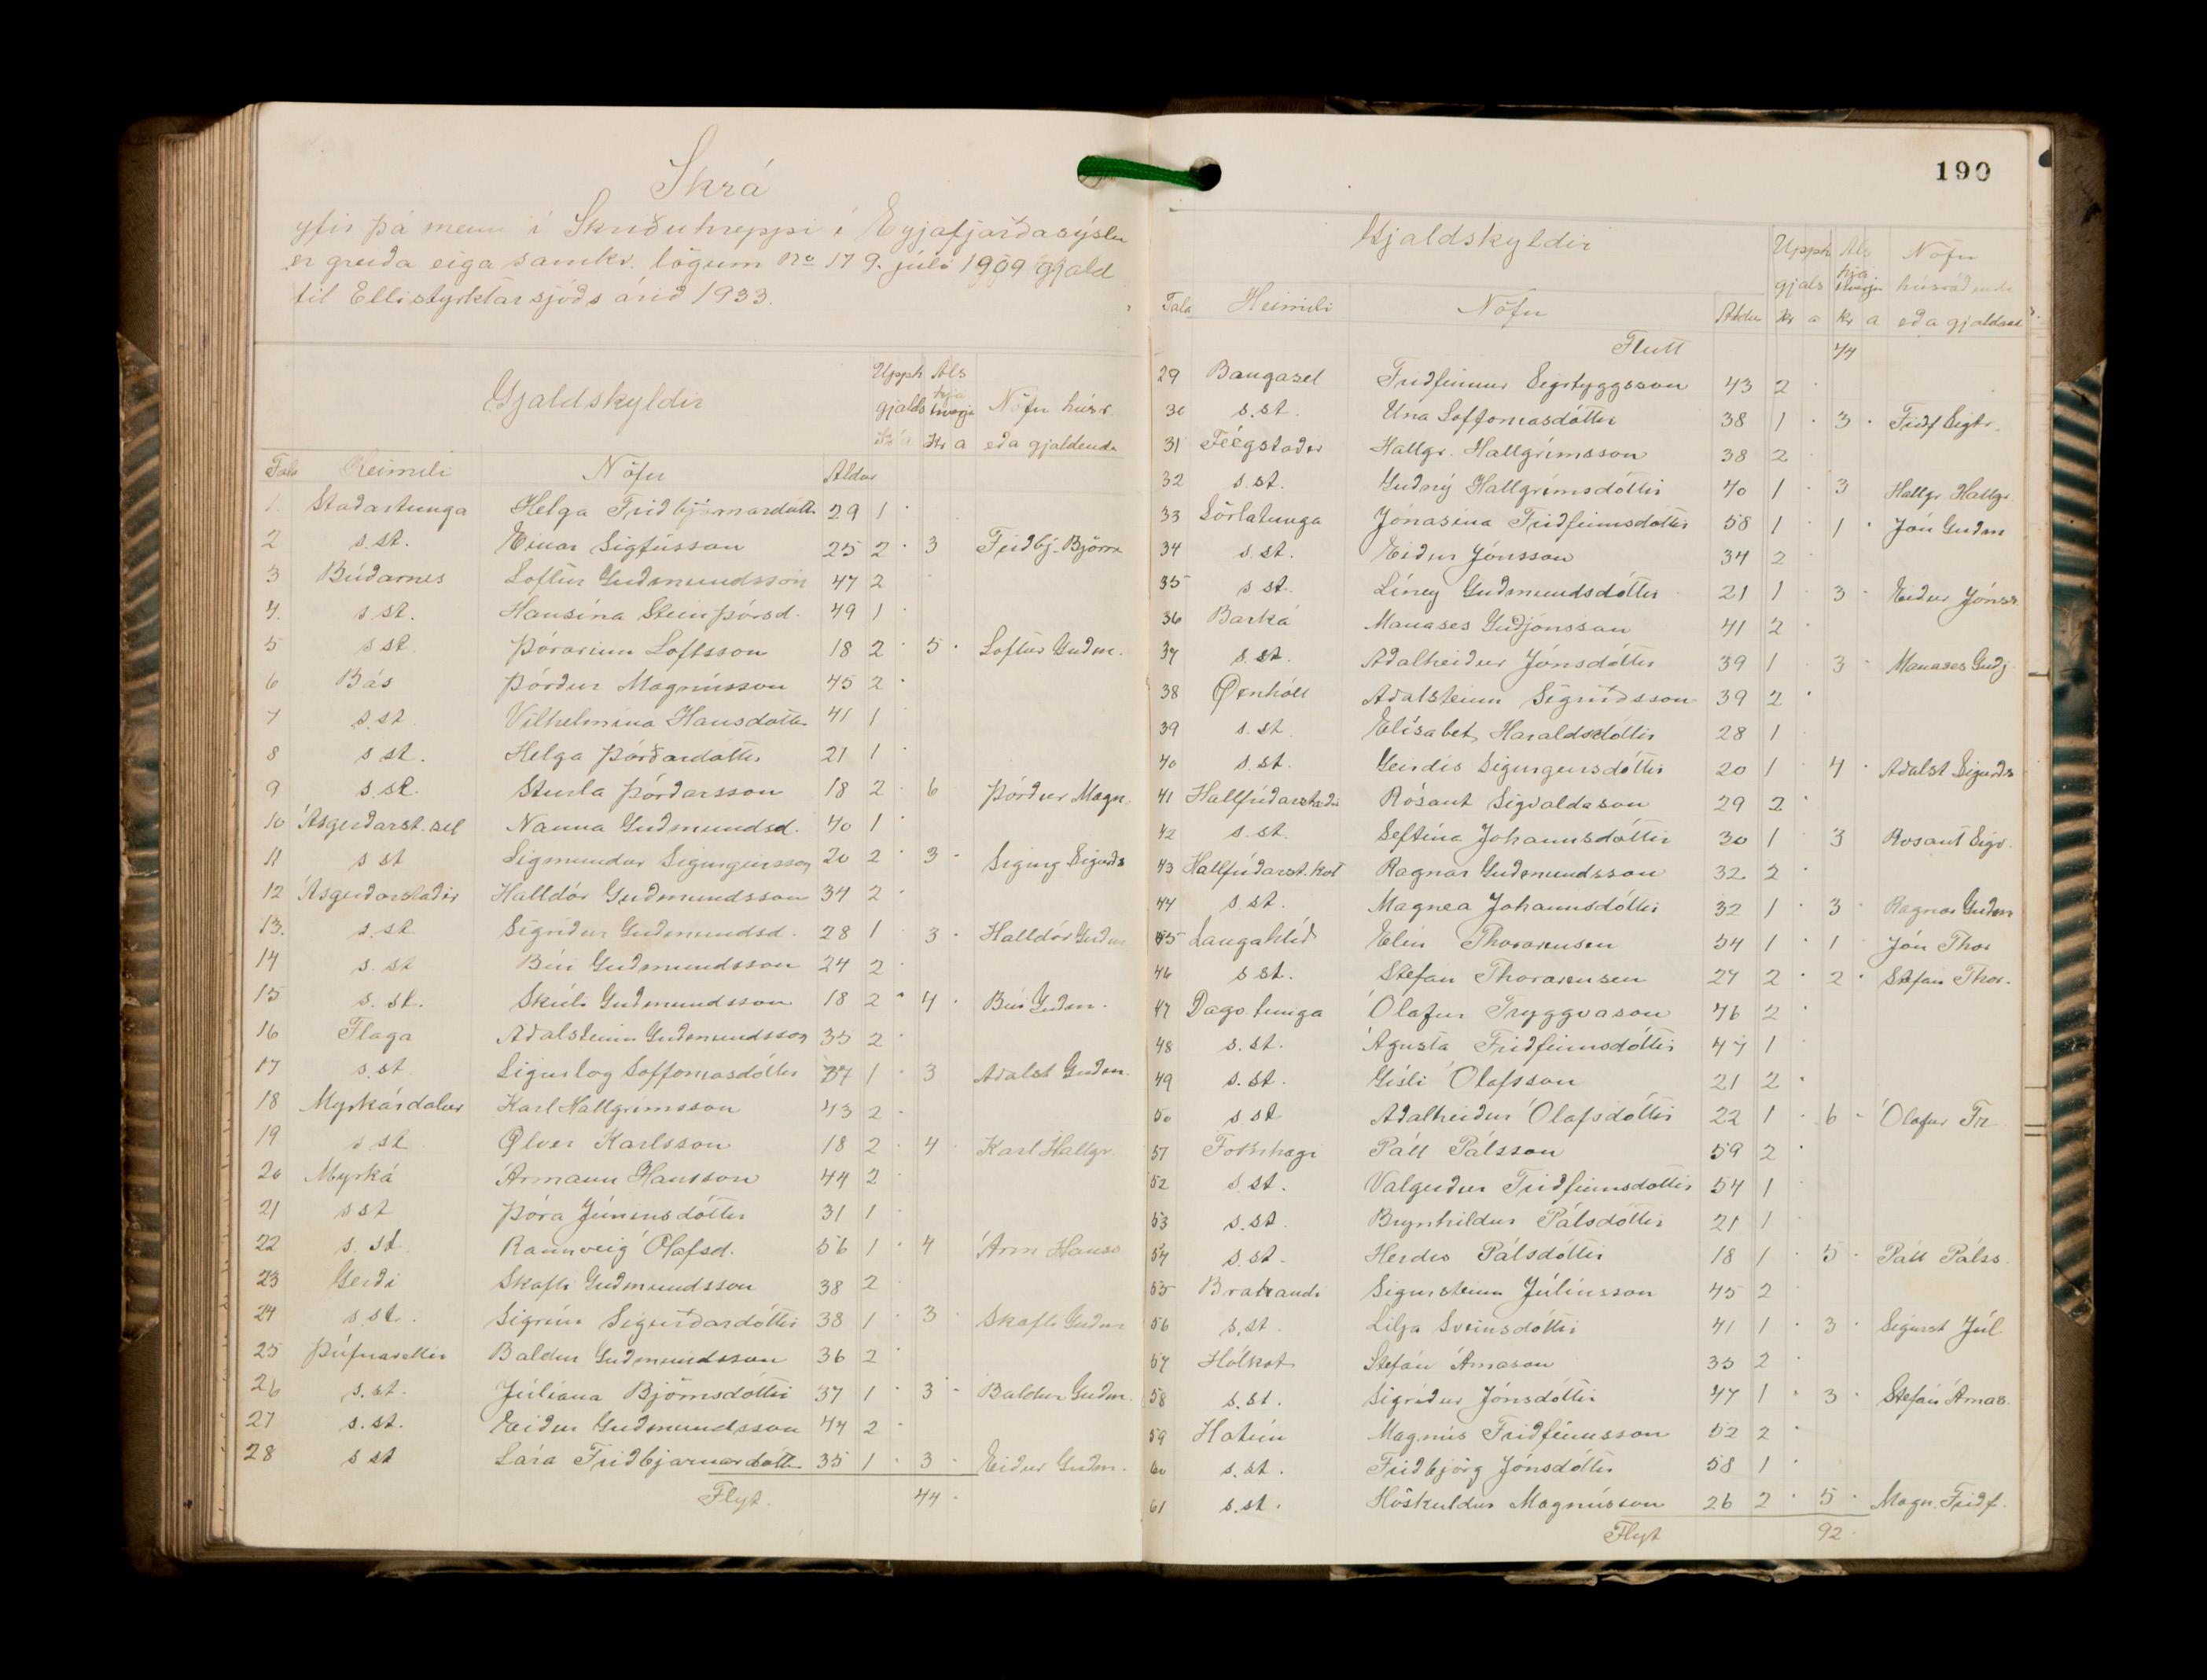 Skrá
yfir þá menn í Skriðuhreppi í Eyjafjarðasýslu
er greiða eiga samkv. lögum No 17 9. júlí 1909 gjald
til Ellistyrktarsjóðs árið 1933.
Gjaldskyldir
Upph gjalds Kr a Als hjá hverju Kr a Nöfn húsr. eða gjaldenda
Tala Heimili Nöfn Aldur
1. Staðartunga Helga Friðbjarnardóttir 29 1
2 s.st. Einar Sigfússon 25 2 · 3 Friðbj. Björns
3 Búðarnes Loftur Guðmundsson 47 2
4. s st. Hansína Steinþórsd. 49 1 ·
5 s st. Þórarinn Loftsson 18 2 · 5 · Loftur Guðm.
6 Bás Þórður Magnússon 45 2 ·
7 s.st Vilhelmína Hansdóttir 41 1
8 s st. Helga Þórðardóttir 21 1 ·
9 s.st. Sturla Þórðarsson 18 2 · 6 Þórður Magn.
10 Ásgerðarst.sel Nanna Guðmundsd. 40 1 ·
11 s st Sigmundur Sigurgeirsson 20 2 · 3 · Sigurg Sigurðs
12 Ásgerðarstaðir Halldór Guðmundsson 34 2 ·
13. s.st Sigríður Guðmundsd. 28 1 3 · Halldór Guðm
14 s. st Búi Guðmundsson 24 2 ·
15 s. st. Skúli Guðmundsson 18 2 · 4 · Búi Guðm.
16 Flaga Aðalsteinn Guðmundsson 35 2 ·
17 s.st Sigurlog Soffomasdóttir 37 1 · 3 Aðalst Guðm.
18 Myrkárdalur Karl Hallgrímsson 43 2 ·
19 s st Ølver Karlsson 18 2 · 4 · Karl Hallgr.
20 Myrká Ármann Hansson 44 2 ·
21 s st Þóra Júníusdóttir 31 1 ·
22 s. st. Rannveig Ólafsd. 56 1 · 4 Árm Hanss
23 Gerði Skafti Guðmundsson 38 2
24 s.st. Sigrún Sigurðardóttir 38 1 · 3 · Skafti Guðm
25 Þúfnavellir Baldur Guðmundsson 36 2 ·
26 s.st. Júlíana Björnsdóttir 37 1 · 3 · Baldur Guðm.
27 s.st. Eiður Guðmundsson 44 2 ·
28 s st Lára Friðbjarnardóttir 35 1 · 3 · Eiður Guðm.
Flyt. 44 ·
190
Gjaldskyldir
Upph gjals kr a Als hjá hverju kr a Nöfn húsráðenda eða gjaldend
Tala Heimili Nöfn Aldur
Flutt 44
29 Baugasel Friðfinnur Sigtyggsson 43 2 ·
30 s.st. Una Soffomasdóttir 38 1 · 3 · Friðf Sigtr.
31 Féegstaðir Hallgr. Hallgrímsson 38 2
32 s.st. Guðný Hallgrímsdóttir 40 1 · 3 Hallgr. Hallgr.
33 Sörlatunga Jónasína Friðfinnsdóttir 58 1 · 1 · Jón Guðm
34 s. st. Eiður Jónsson 34 2
35 s st. Líney Guðmundsdóttir 21 1 · 3 · Eiður Jónss
36 Barká Manases Guðjónsson 41 2 ·
37 s.st. Aðalheiður Jónsdóttir 39 1 · 3 · Manases Guðj
38 Øxnhóll Aðalsteinn Sigurðsson 39 2 ·
39 s. st. Elísabet Haraldsdóttir 28 1
40 s.st. Gerdís Sigurgeirsdóttir 20 1 · 4 · Aðalst Sigurðs
41 Hallfríðarstaðir Rósant Sigvaldason 29 2 ·
42 s.st. Seftína Johannsdóttir 30 1 3 Rosant Sigv.
43 Hallfríðarst.kot Ragnar Guðmundsson 32 2 ·
44 s.st. Magnea Johannsdóttir 32 1 · 3 · Ragnar Guðm
45 Laugahlíð Elín Thorarensen 54 1 · 1 · Jón Thor
46 s st. Stefán Thorarensen 27 2 · 2 · Stefan Thor.
47 Dagotunga Ólafur Tryggvason 46 2 ·
48 s.st. Ágústa Friðfinnsdóttir 47 1
49 s.st. Gísli Ólafsson 21 2 ·
50 s st Aðalheiður Ólafsdóttir 22 1 · 6 · Ólafur Tr
51 Fornhagi Páll Pálsson 59 2 ·
52 s.st. Valgerður Friðfinnsdóttir 54 1
53 s.st. Brynhildur Pálsdóttir 21 1
54 s.st. Herdís Pálsdóttir 18 1 · 5 · Páll Pálss
55 Bratrandi Sigursteinn Júlíusson 45 2
56 s.st. Lilja Sveinsdóttir 41 1 · 3 · Sigurst Júl.
57 Hólkot Stefán Árnason 35 2 ·
58 s.st. Sigríður Jónsdóttir 47 1 · 3 · Stefán Árnas.
59 Hatún Magnús Friðfinnsson 52 2 ·
60 s.st. Friðbjörg Jónsdóttir 58 1 ·
61 s.st. Höskuldur Magnússon 26 2 · 5 · Magn. Friðf.
Flyt 92 ·